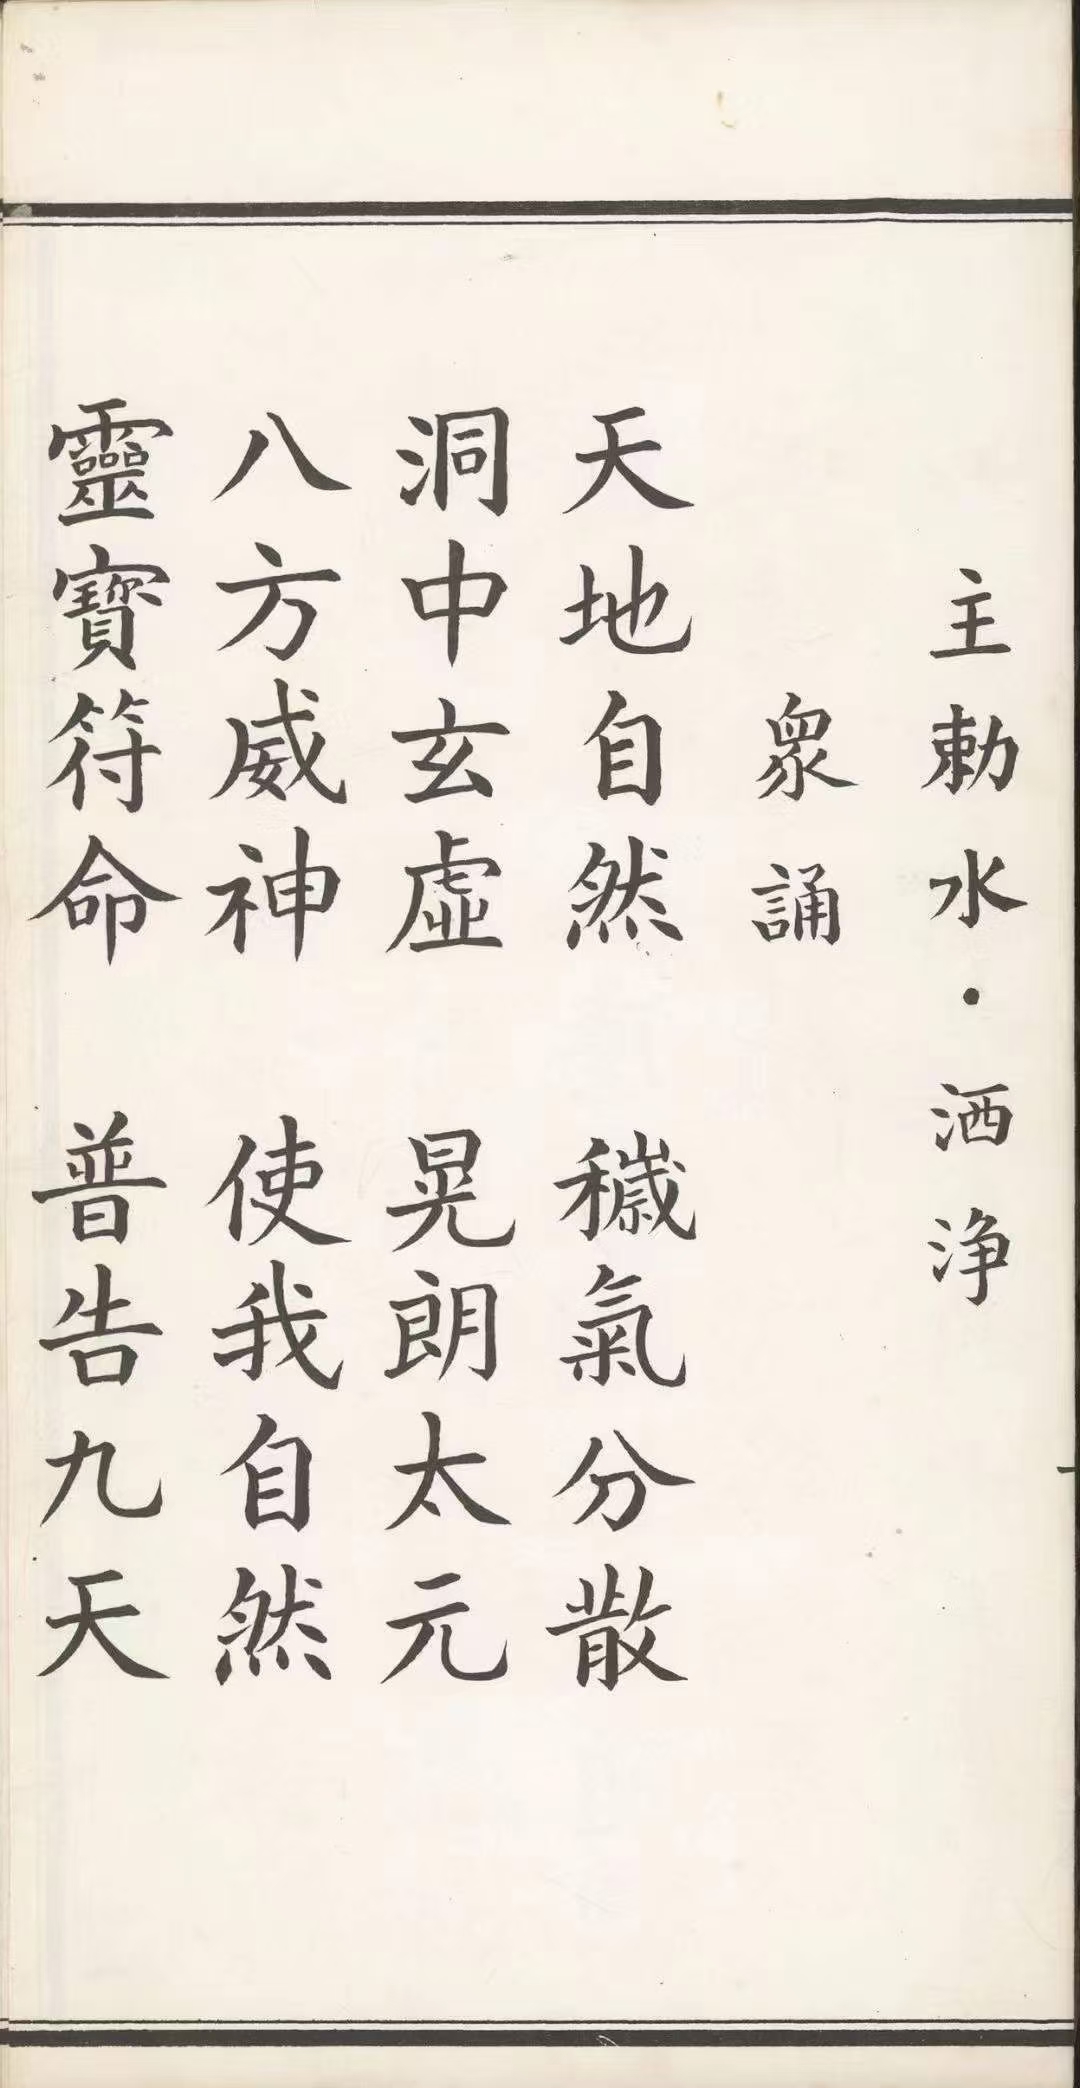 主勅水·洒浄
衆誦
天地自然　穢氣分散
洞中玄虛　晃朗太元
八方威神　使我自然
靈寶符命　普告九天